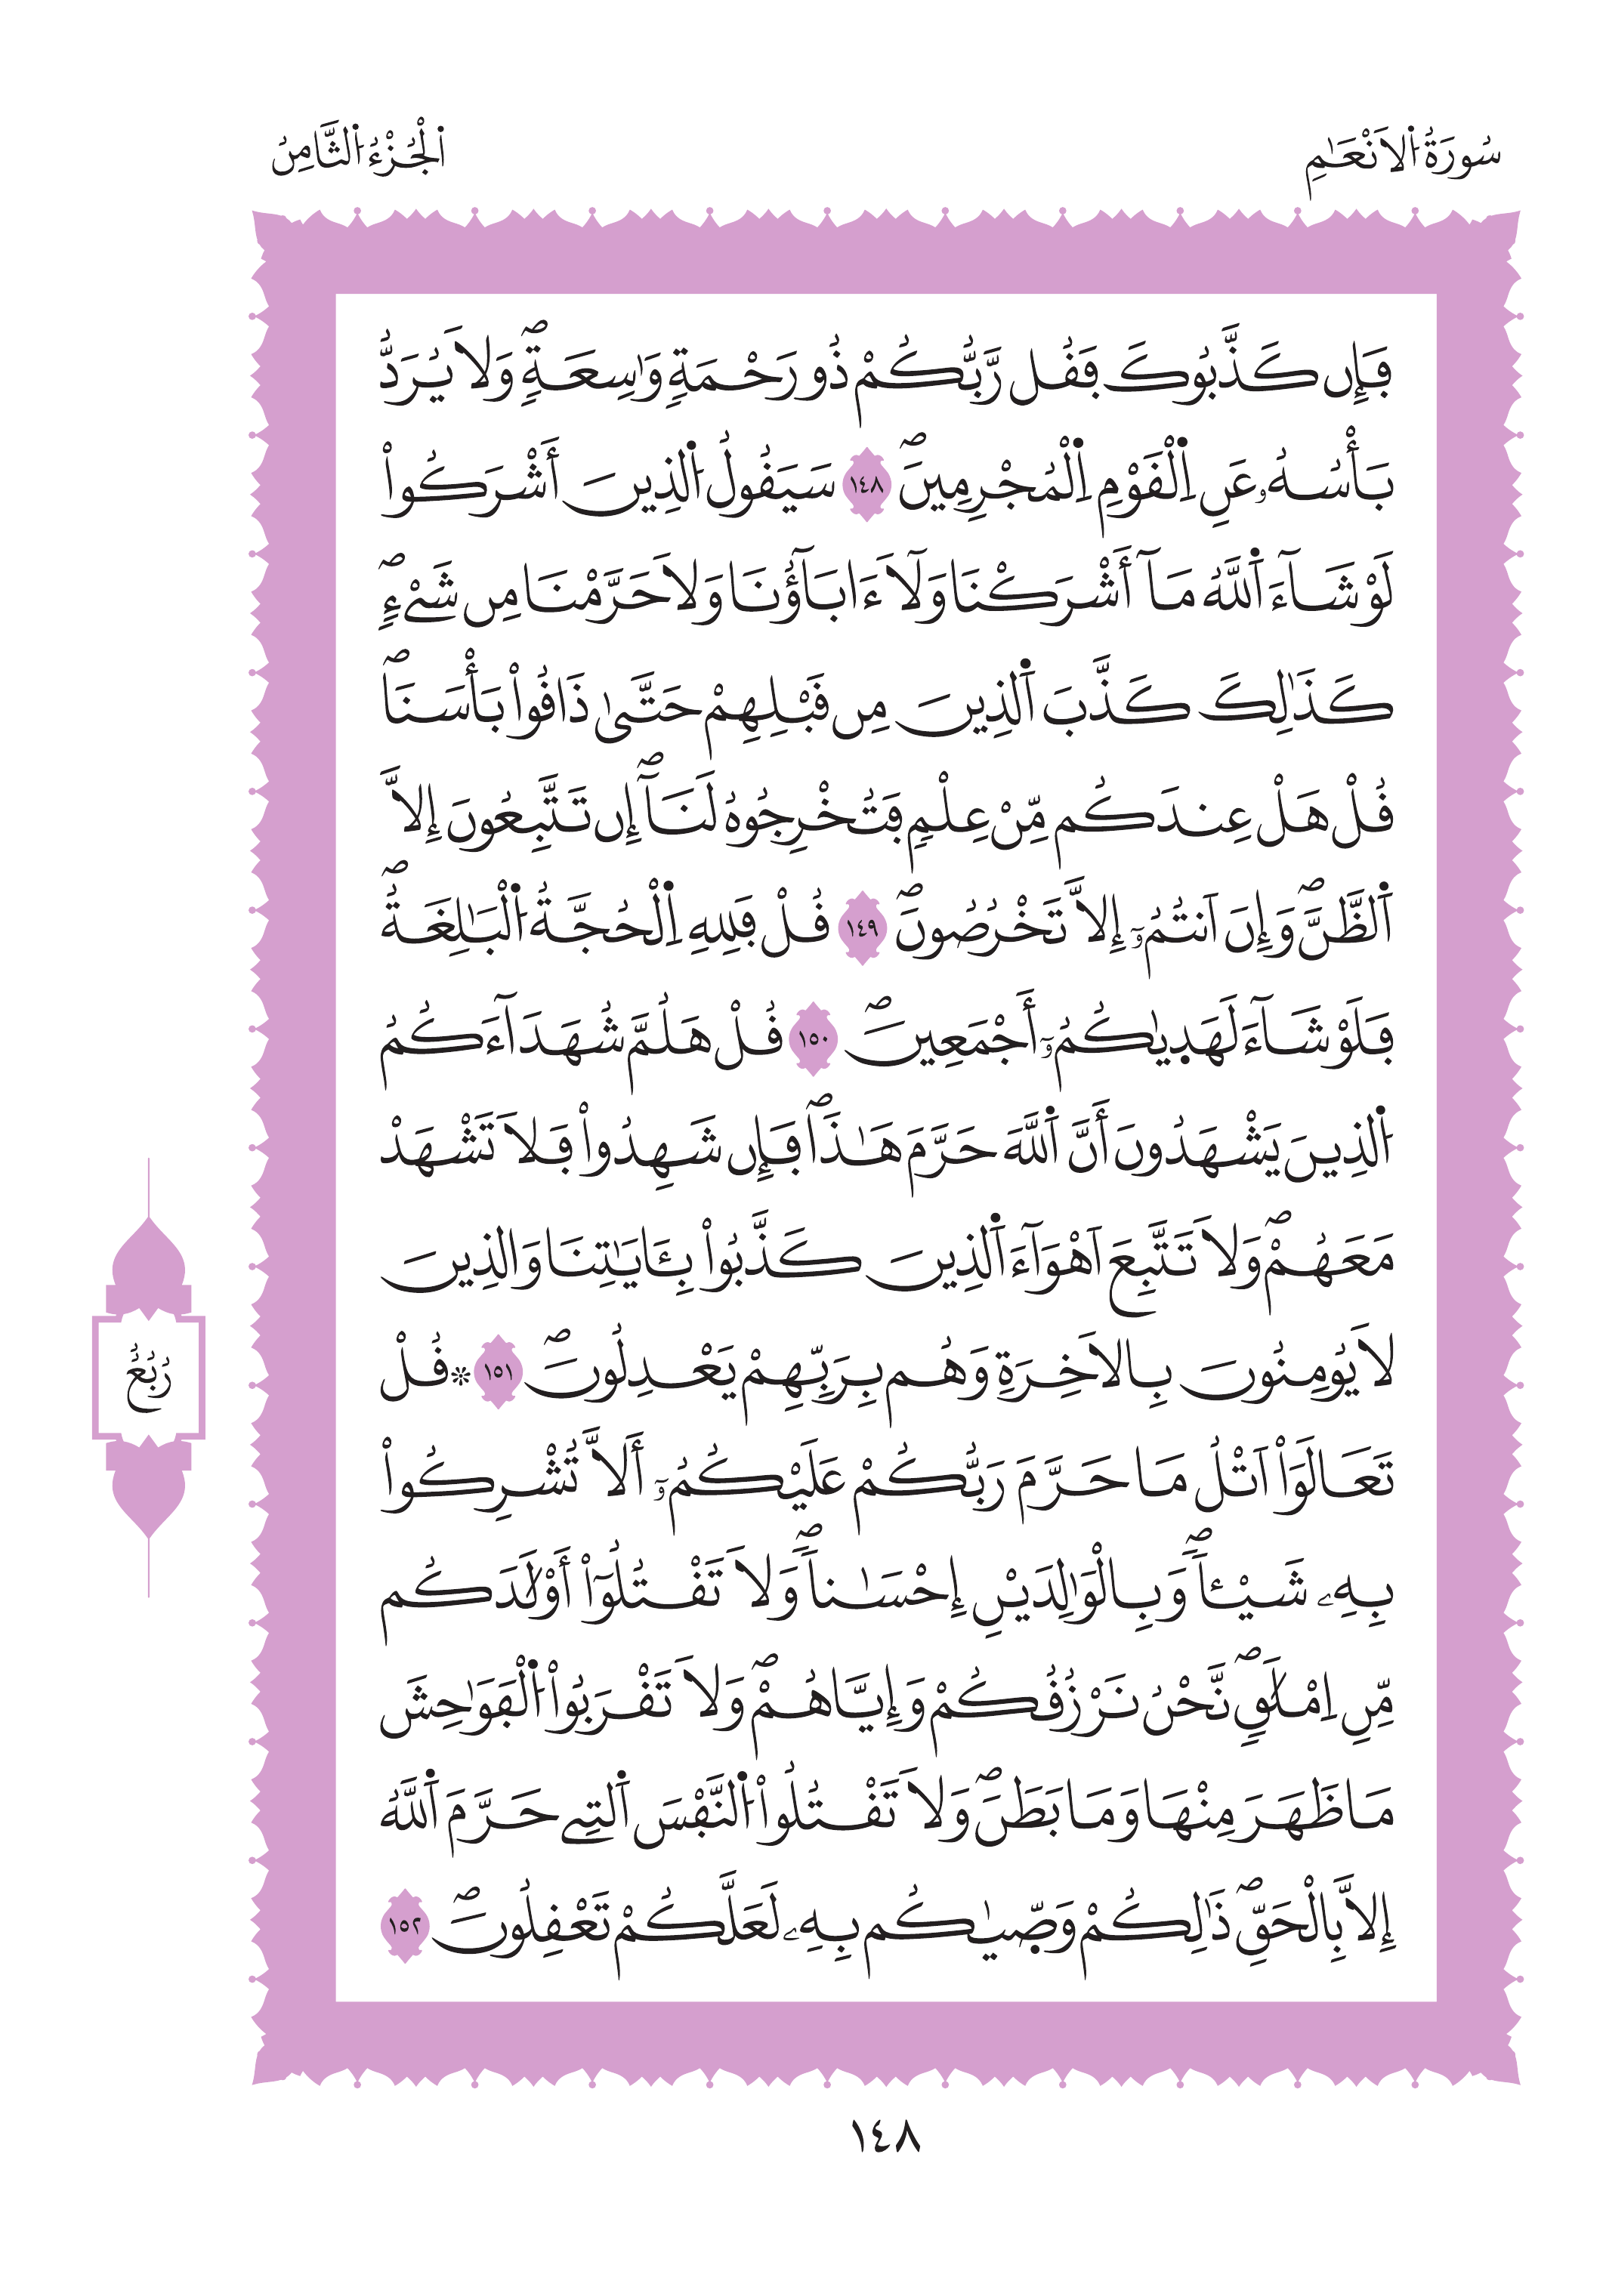 سُورَةُ اُ۬لَانْعَٰمِ
اُ۬لْجُزْءُ اُ۬لثَّامِنُ
فَإِن كَذَّبُوكَ فَقُل رَّبُّكُمْ ذُو رَحْمَةٖ وَٰسِعَةٖۖ وَلَا يُرَدُّ
بَأْسُهُۥ عَنِ اِ۬لْقَوْمِ اِ۬لْمُجْرِمِينَۖ ١٤٨ سَيَقُولُ اُ۬لذِينَ أَشْرَكُواْ
لَوْ شَآءَ اَ۬للَّهُ مَآ أَشْرَكْنَا وَلَآ ءَابَآؤُنَا وَلَا حَرَّمْنَا مِن شَےْءٖۖ
كَذَٰلِكَ كَذَّبَ اَ۬لذِينَ مِن قَبْلِهِمْ حَتَّىٰ ذَاقُواْ بَأْسَنَاۖ
قُلْ هَلْ عِندَكُم مِّنْ عِلْمٖ فَتُخْرِجُوهُ لَنَآۖ إِن تَتَّبِعُونَ إِلَّا
اَ۬لظَّنَّۖ وَإِنَ اَنتُمُۥٓ إِلَّا تَخْرُصُونَۖ ١٤٩ قُلْ فَلِلهِ اِ۬لْحُجَّةُ اُ۬لْبَٰلِغَةُۖ
فَلَوْ شَآءَ لَهَدِيٰكُمُۥٓ أَجْمَعِينَۖ ١٥٠ قُلْ هَلُمَّ شُهَدَآءَكُمُ
اُ۬لذِينَ يَشْهَدُونَ أَنَّ اَ۬للَّهَ حَرَّمَ هَٰذَاۖ فَإِن شَهِدُواْ فَلَا تَشْهَدْ
مَعَهُمْۖ وَلَا تَتَّبِعَ اَهْوَآءَ اَ۬لذِينَ كَذَّبُواْ بِـَٔايَٰتِنَا وَالذِينَ
لَا يُومِنُونَ بِالَاخِرَةِ وَهُم بِرَبِّهِمْ يَعْدِلُونَۖ ١٥١ ۞ قُلْ
تَعَالَوَاْ اَتْلُ مَا حَرَّمَ رَبُّكُمْ عَلَيْكُمُۥٓ أَلَّا تُشْرِكُواْ
بِهِۦ شَيْـٔاٗۖ وَبِالْوَٰلِدَيْنِ إِحْسَٰناٗۖ وَلَا تَقْتُلُوٓاْ أَوْلَٰدَكُم
مِّنِ اِمْلَٰقٖۖ نَّحْنُ نَرْزُقُكُمْ وَإِيَّاهُمْۖ وَلَا تَقْرَبُواْ اُ۬لْفَوَٰحِشَ
مَا ظَهَرَ مِنْهَا وَمَا بَطَنَۖ وَلَا تَقْتُلُواْ اُ۬لنَّفْسَ اَ۬لتِے حَرَّمَ اَ۬للَّهُ
إِلَّا بِالْحَقِّۖ ذَٰلِكُمْ وَصّ۪يٰكُم بِهِۦ لَعَلَّكُمْ تَعْقِلُونَۖ ١٥٢
رُبُعُ
١٤٨